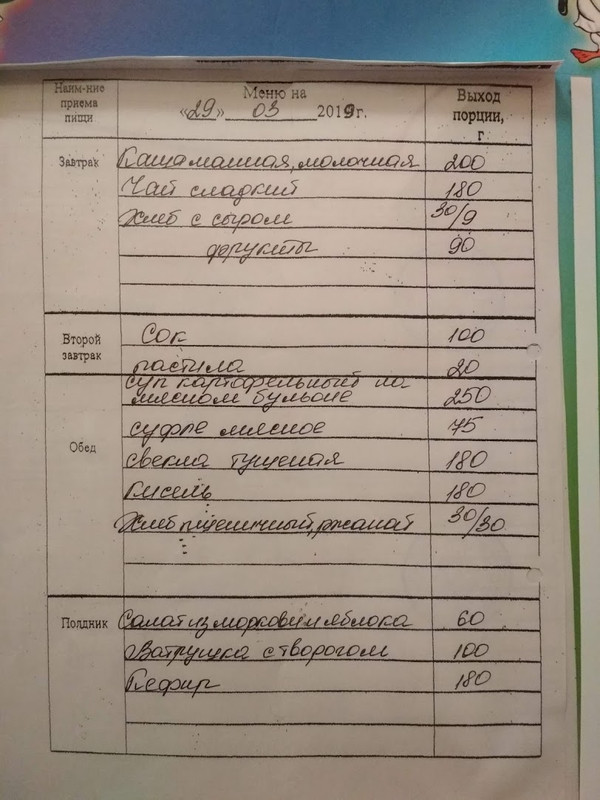 Наим-ние приема пищи
Меню на
«29» 03 2019г.
Выход порции, г
Завтрак
Каша манная, молочная 200
Чай сладкий 180
Хлеб с сыром 30/9
фрукты 90
Второй завтрак
Сок 100
пастила 20
Обед
суп картофельный на
мясном бульоне 250
суфле мясное 75
свекла тушеная 180
Кисель 180
Хлеб пшеничный, ржаной 30/30
Полдник
Салат из моркови и яблока 60
Ватрушка с творогом 100
Кефир 180